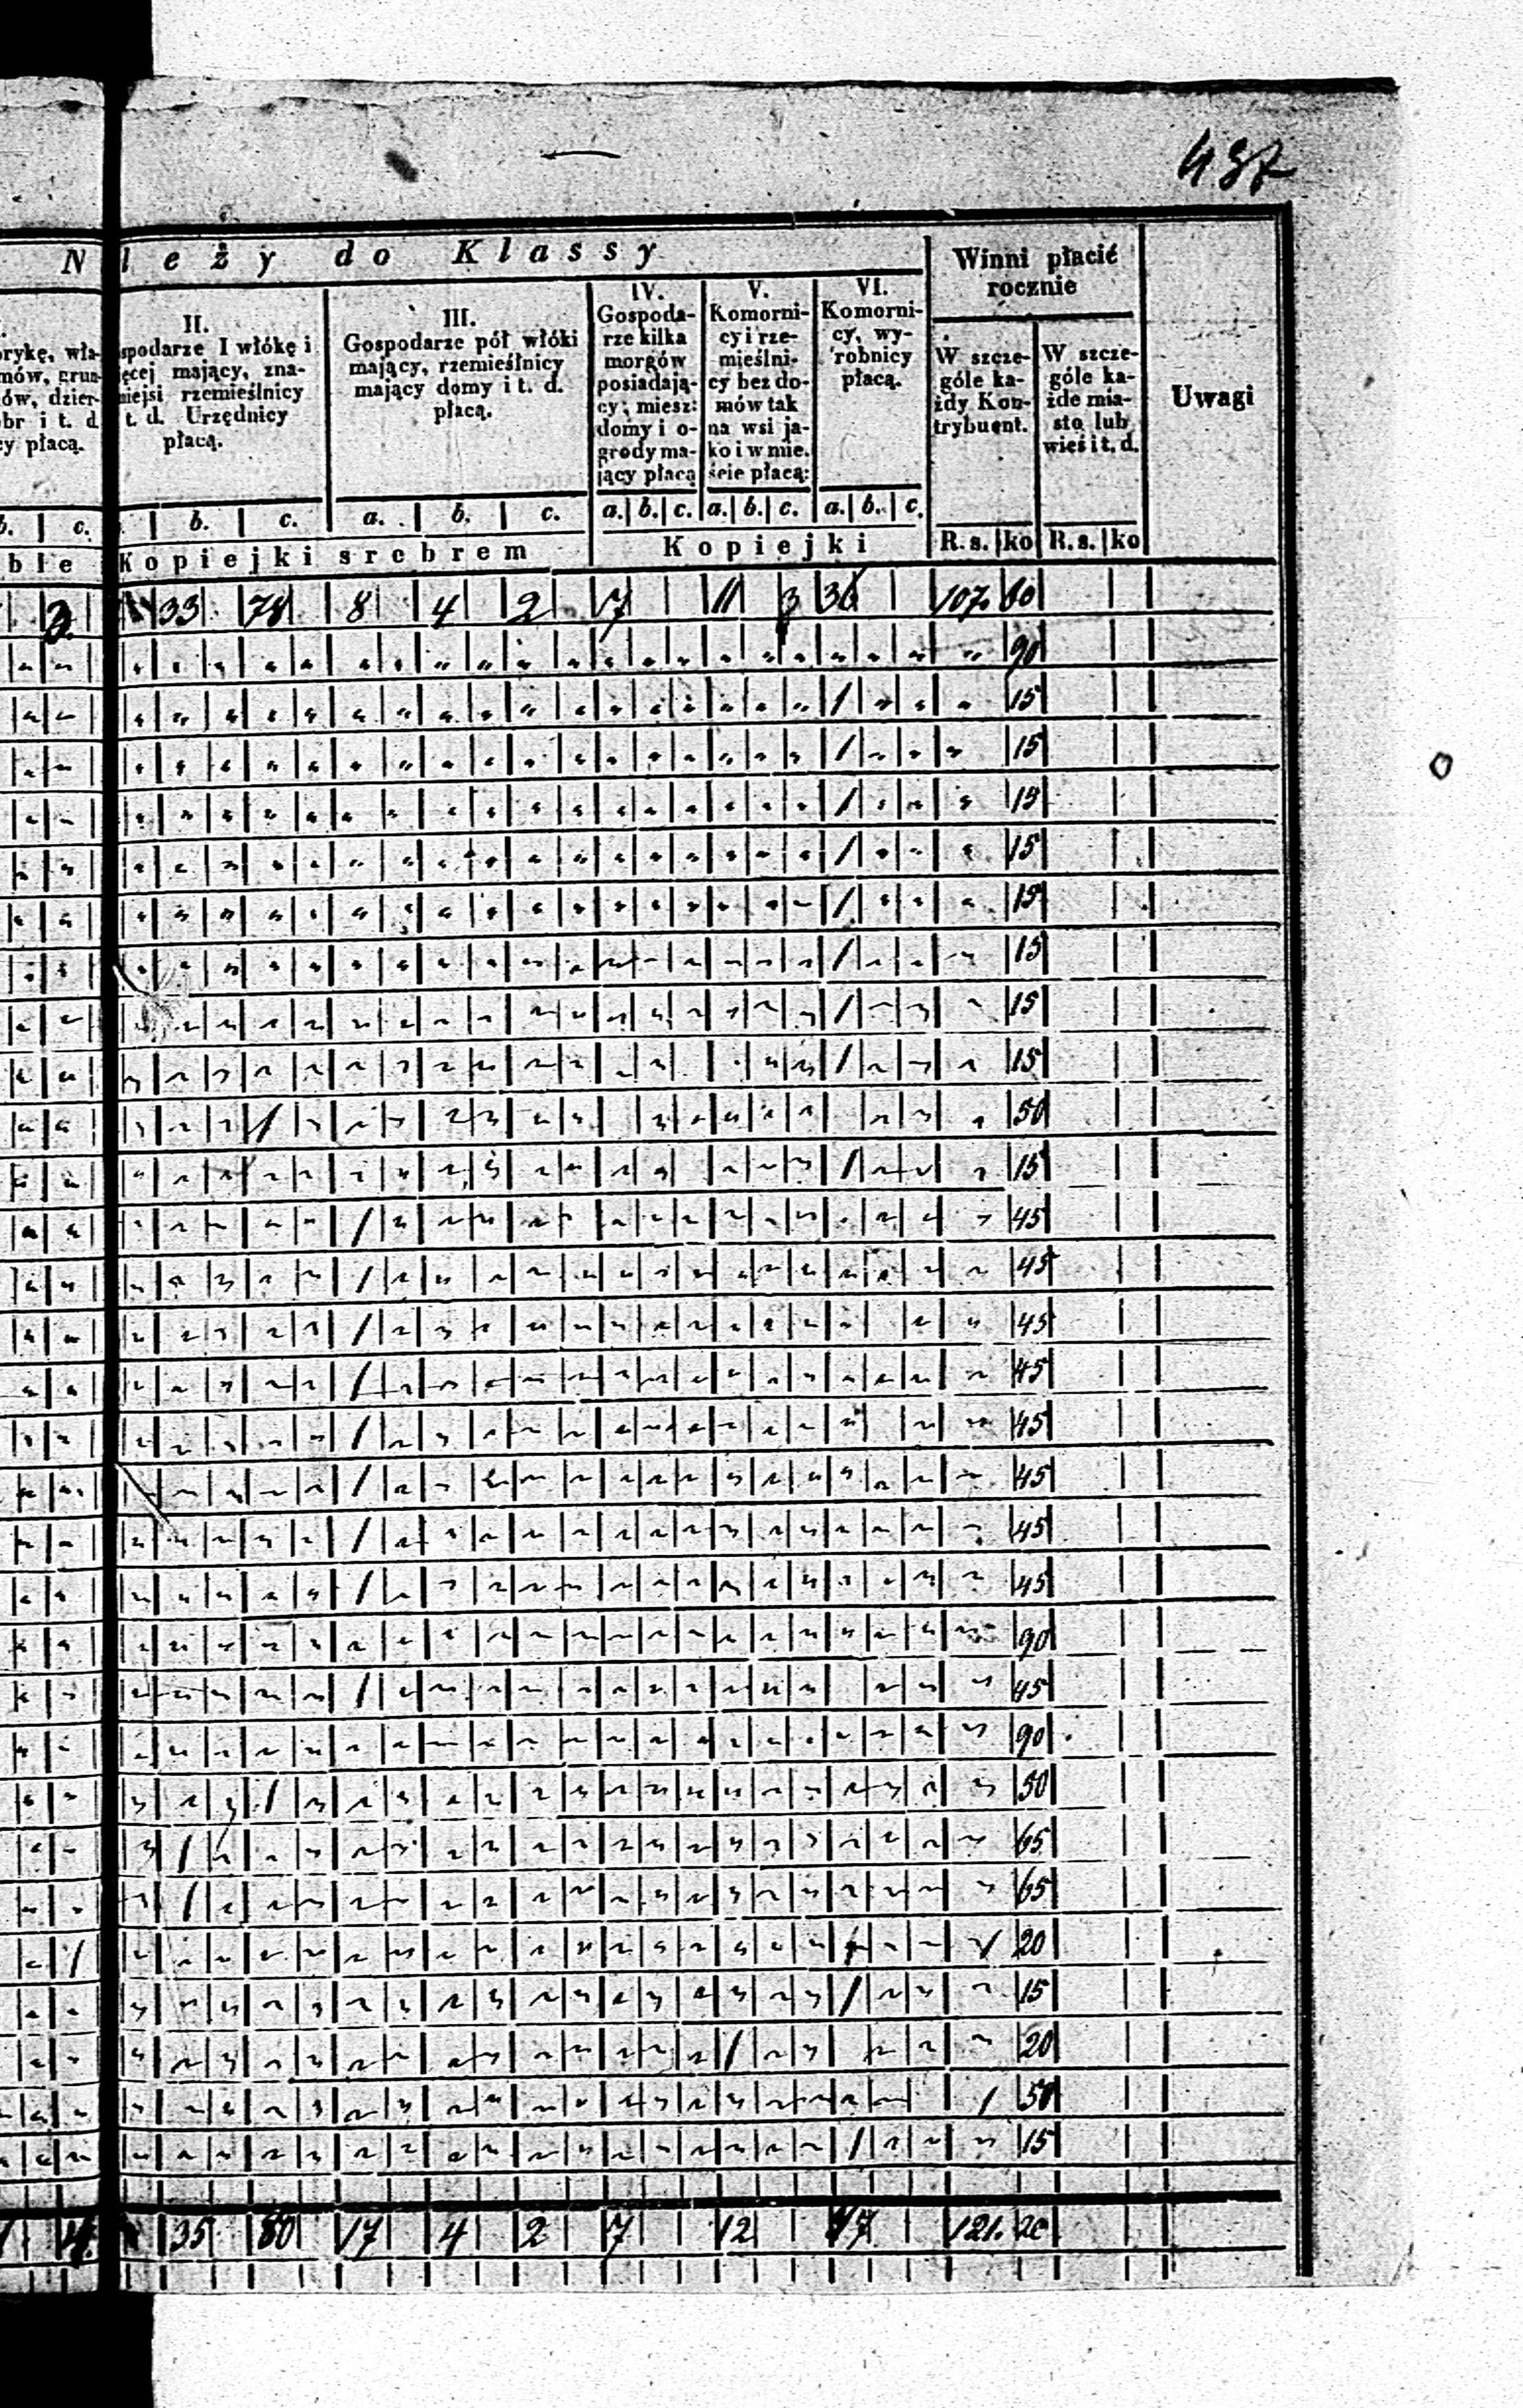 437
N leży do Klassy
Winni płacić
rocznie
Uwagi
brykę, wła-
mów, grun-
ów, dzier-
br i t. d
cy płacą.
II.
spodarze I włókę i
ęcej mający, zna-
niejsi rzemieślnicy
t. d. Urzędnicy
płacą.
III.
Gospodarze pół włóki
mający, rzemieślnicy
mający domy i t. d.
płacą.
IV.
Gospoda-
rze kilka
morgów
posiadają-
cy; miesz:
domy i o-
grody ma-
jący płacą
V.
Komorni-
cy i rze-
mieślni-
cy bez do-
mów tak
na wsi ja-
ko i w mie.
ście płacą:
VI.
Komorni-
cy, wy-
robnicy
płacą.
W szcze-
góle ka-
żdy Kon-
trybuent.
W szcze-
góle ka-
żde mia-
sto lub
wieś i t. d.
b. c. b. c. a. b. c. a. b. c. a. b. c. a. b. c.
ble Kopiejki srebrem Kopiejki R. s. ko R. s. ko
2 33 78 8 4 2 7 11 3 36 107. 60
" 90
/ " 15
/ " 15
/ " 15
/ " 15
/ " 15
/ " 15
/ " 15
/ " 15
/ " 50
/ " 15
/ " 45
/ " 45
/ " 45
/ " 45
/ " 45
/ " 45
/ " 45
/ " 45
" 90
/ " 45
" 90
/ " 50
/ " 65
/ " 65
/ 20
/ " 15
/ " 20
/ 50
/ " 15
4. 35 80 17 4 2 7 12 47 121. 20